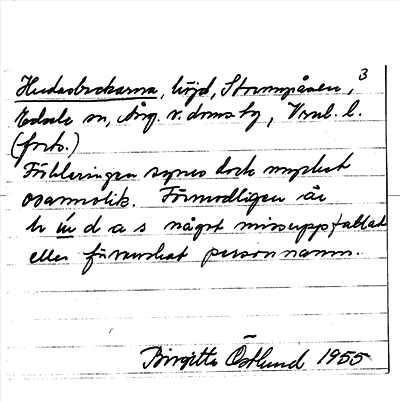 3
Hudasbackarna, höjd, Stormyråsen,
Edsele sn, Ång. v. doms by, Vnrl. l.
(forts.)
Förklaringen synes dock mycket
osannolik. Förmodligen är
h u d a s något missuppfattat
eller förvanskat personnamn.
Birgitta Östlund 1955